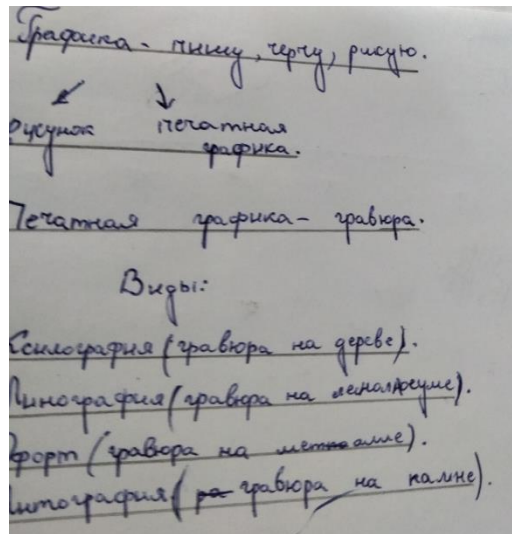 Графика - пишу, черчу, рисую.
рисунок печатная
графика.
Печатная графика - гравюра.
Виды:
Ксилография (гравюра на дереве).
Линография (гравюра на ленолдеуме).
Офорт (гравюра на металле).
Литография (гравюра на камне).